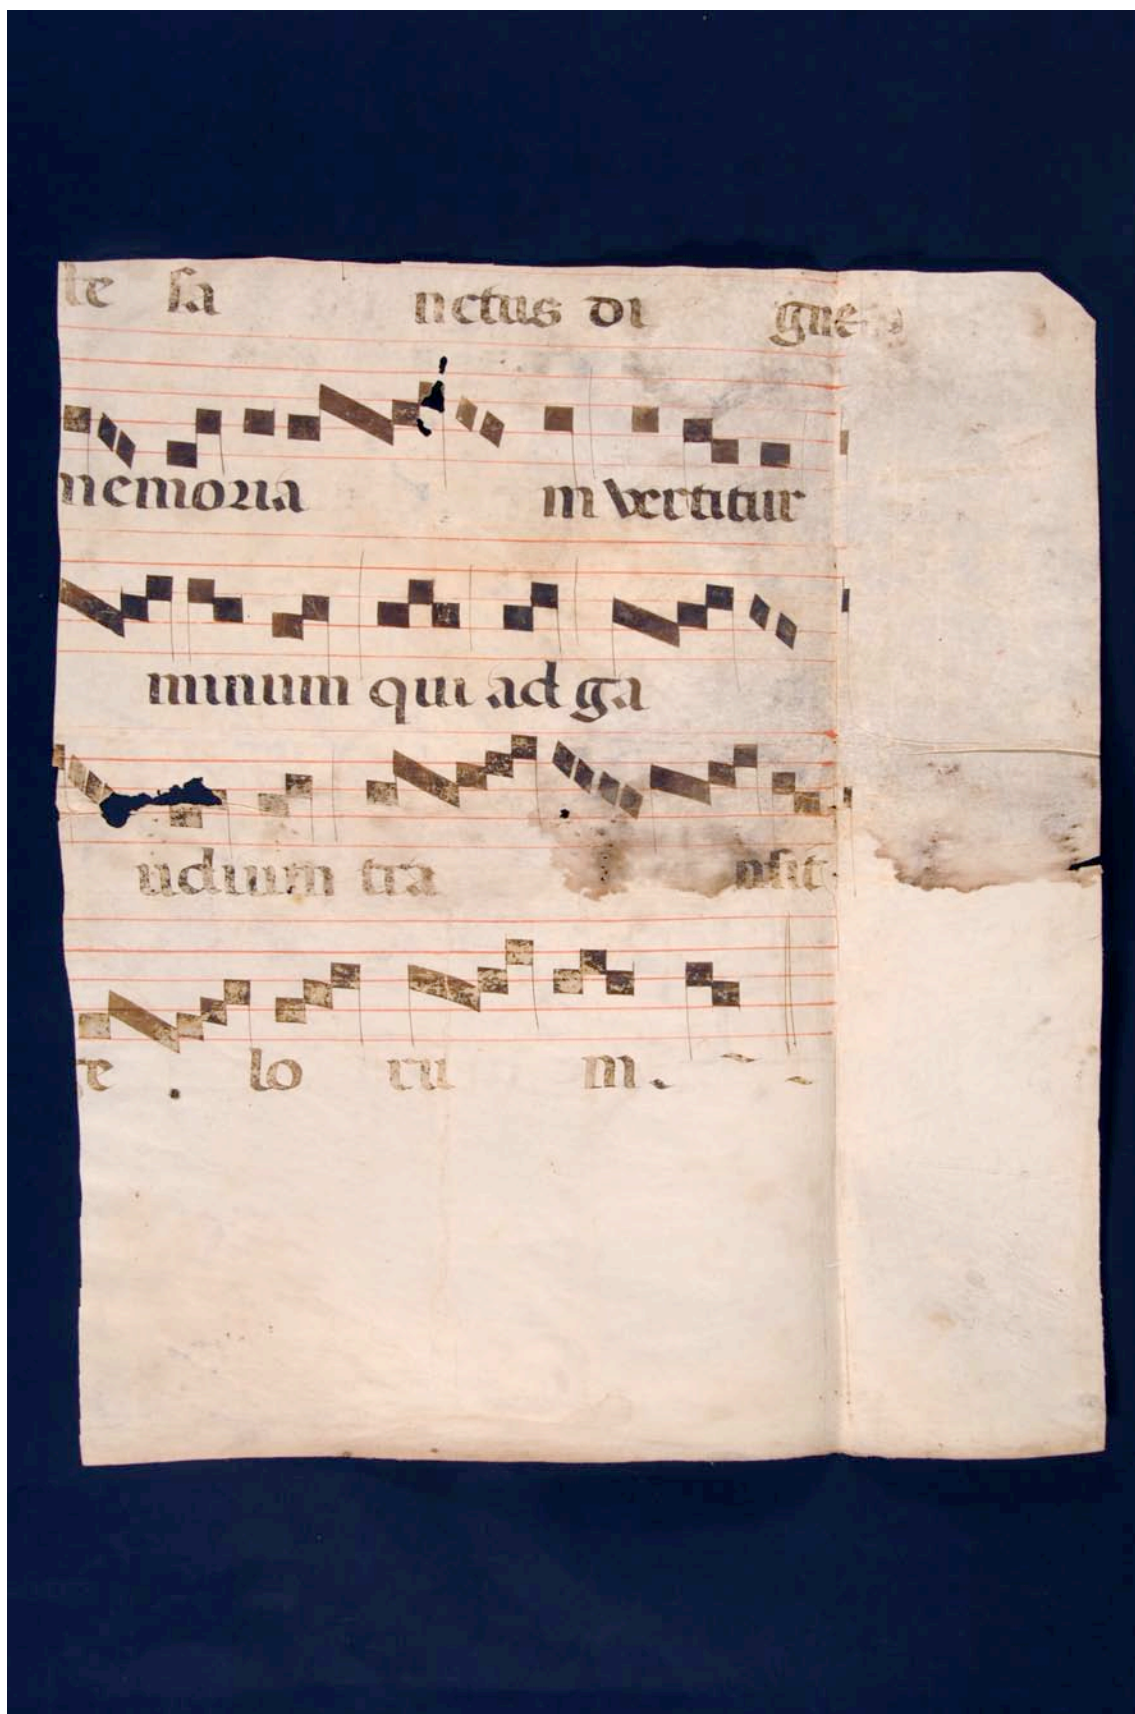 te sa nctus di gne
memoria m vertitur
minum qui ad ga
udium tra nsit
e lo ru m.